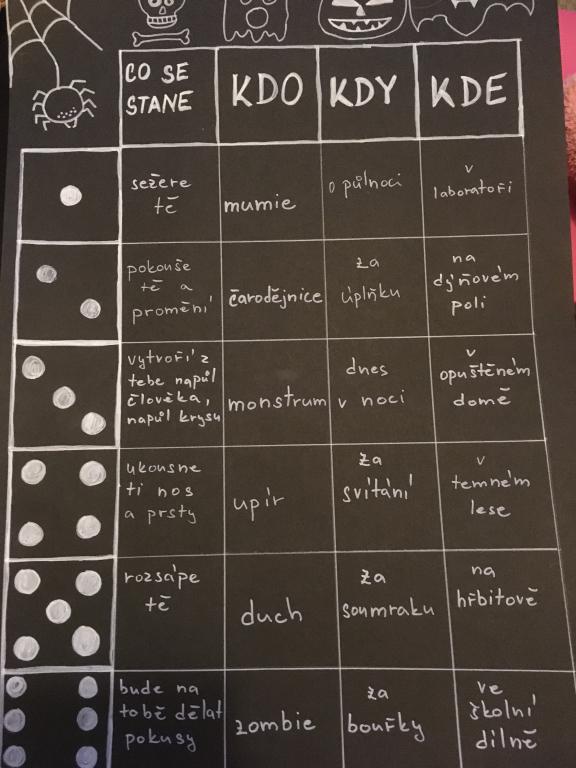 CO SE
STANE
KDO
KDY
KDE
sežere
tě
mumie
o půlnoci
v
laboratoři
pokouše
tě a
promění
čarodějnice
za
úplňku
na
dýňovém
poli
vytvoří z
tebe napůl
člověka,
napůl krysu
monstrum
dnes
v noci
v
opuštěném
domě
ukousne
ti nos
a prsty
upír
za
svítání
v
temném
lese
rozsápe
tě
duch
za
soumraku
na
hřbitově
bude na
tobě dělat
pokusy
zombie
za
bouřky
ve
školní
dílně